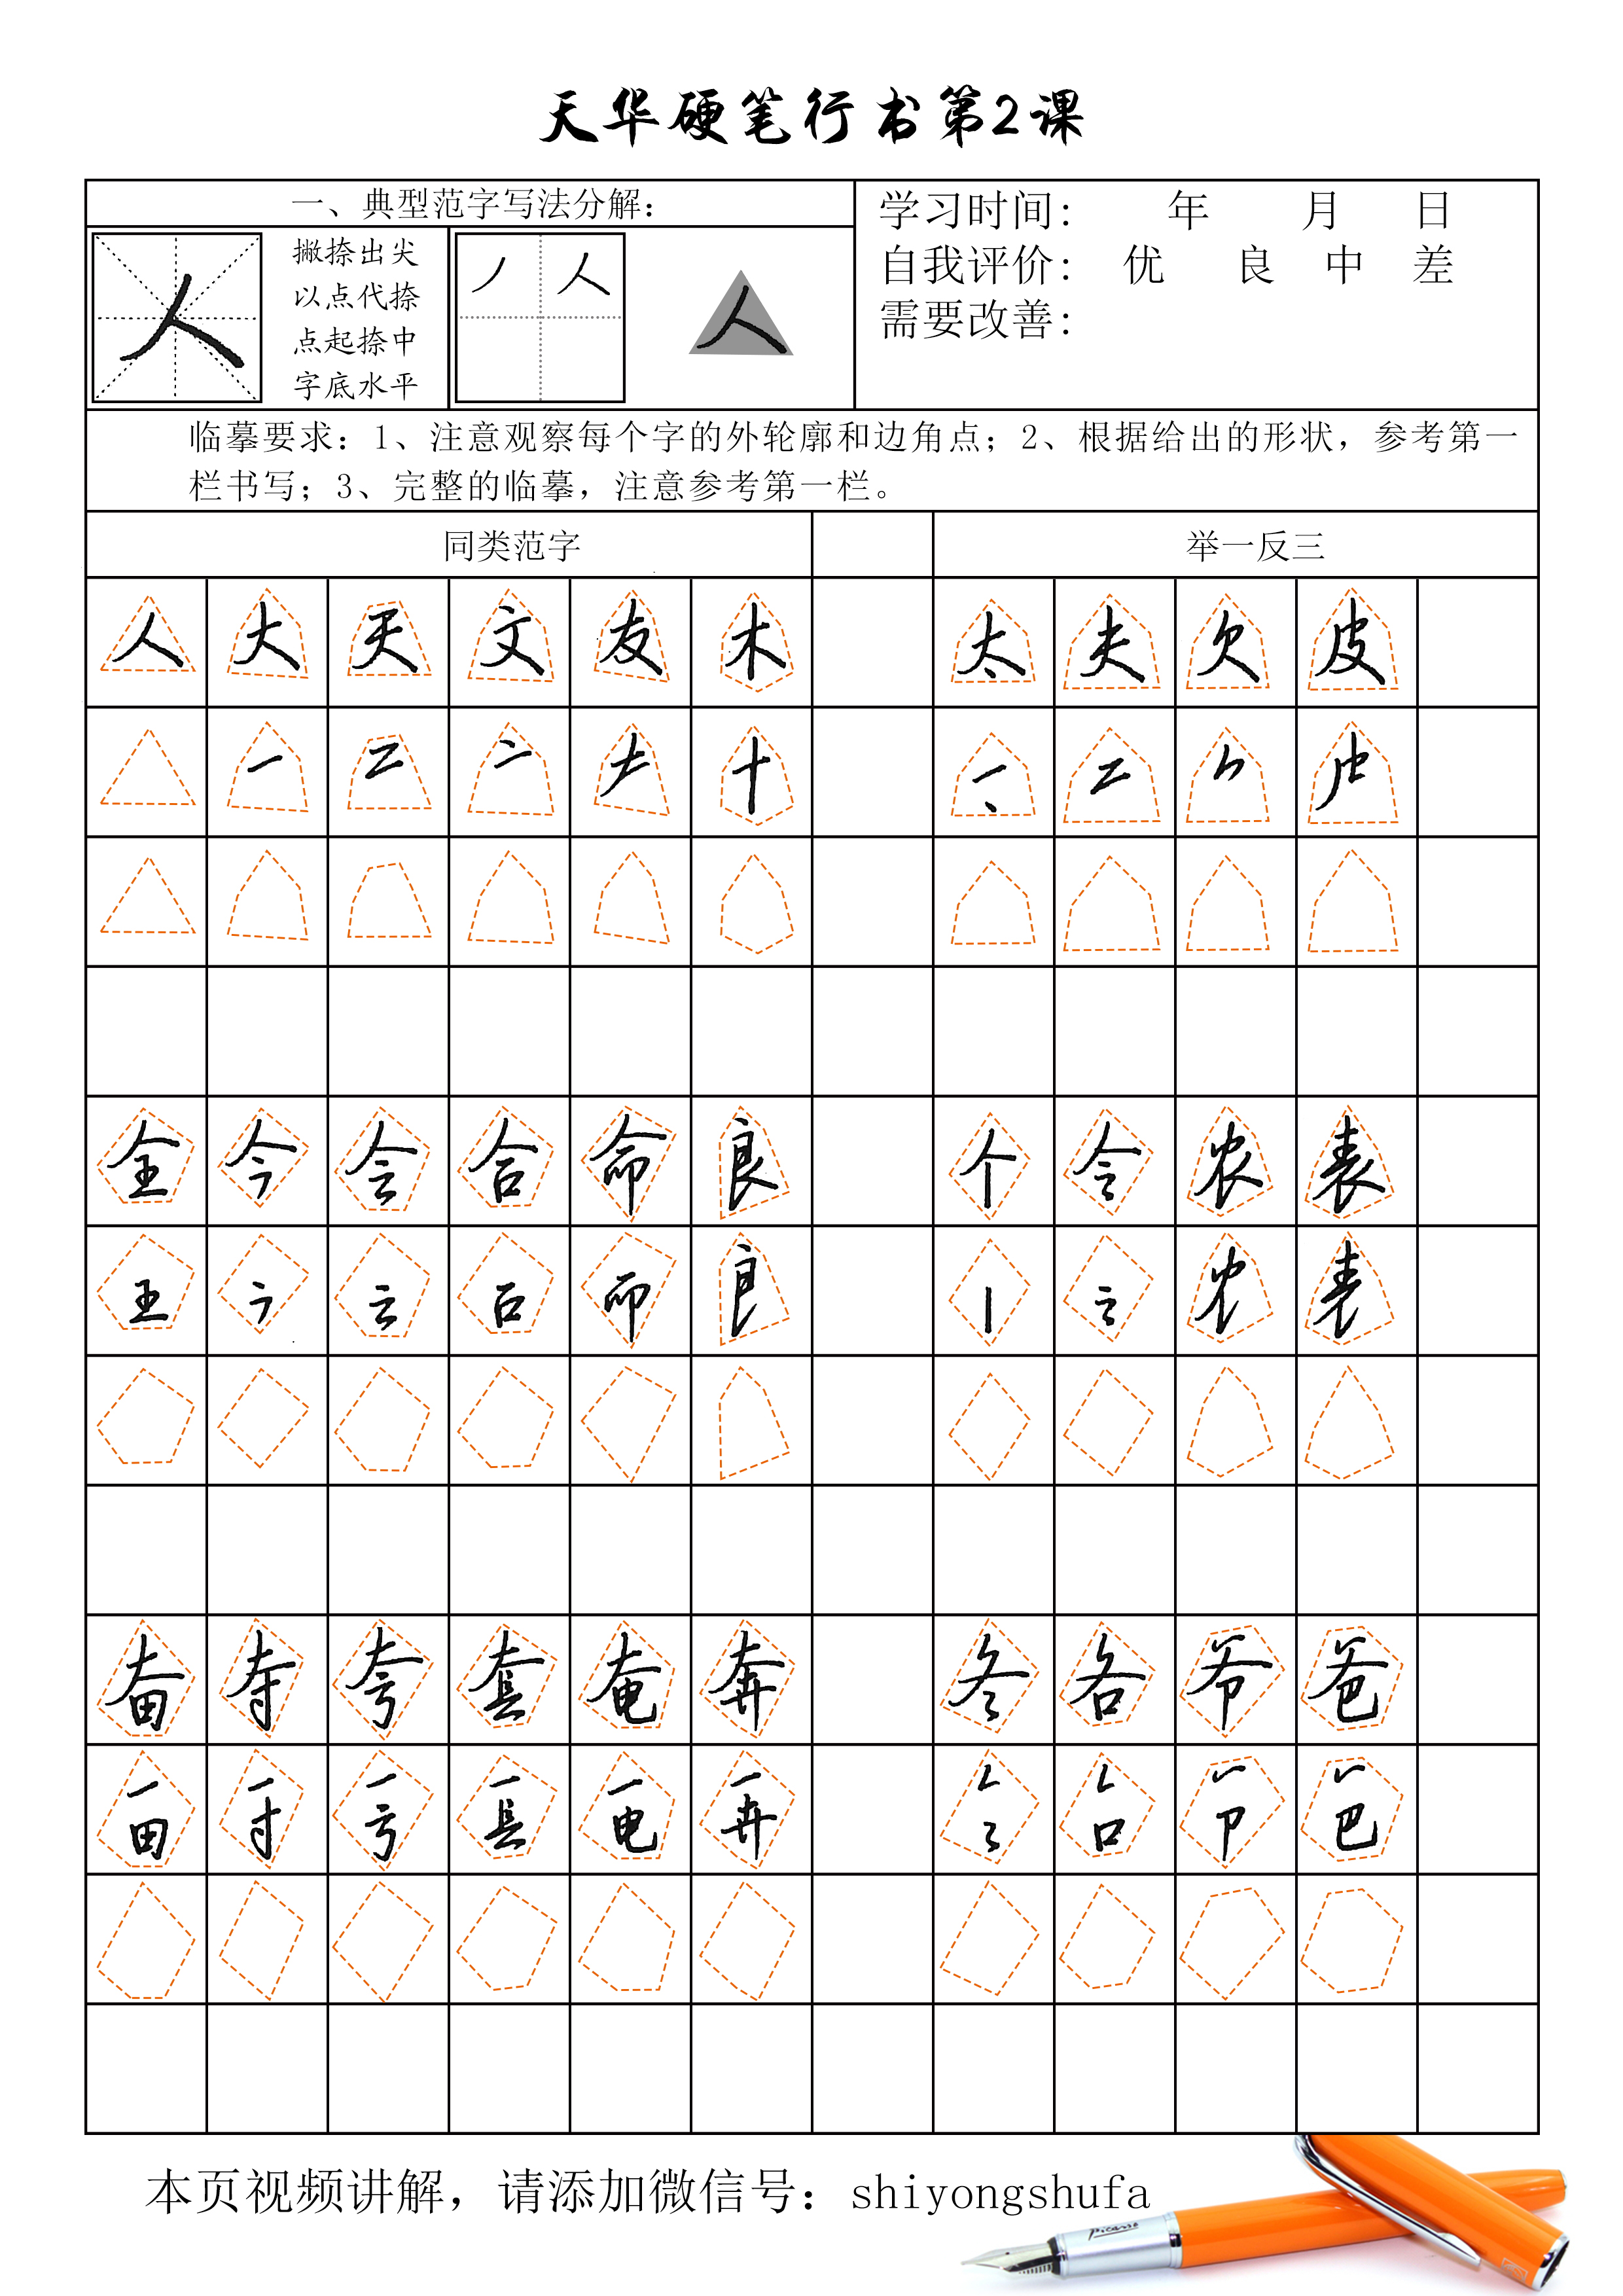 天华硬笔行书第2课
一、典型范字写法分解：
撇捺出尖
以点代捺
点起捺中
字底水平
人
丿 人
人
学习时间： 年 月 日
自我评价： 优 良 中 差
需要改善：
临摹要求：1、注意观察每个字的外轮廓和边角点；2、根据给出的形状，参考第一
栏书写；3、完整的临摹，注意参考第一栏。
同类范字 举一反三
人 大 天 文 友 木 太 夫 欠 皮
全 今 会 合 命 良 个 令 农 表
奋 夺 夸 套 奄 奔 冬 各 爷 爸
本页视频讲解，请添加微信号：shiyongshufa
Picasso